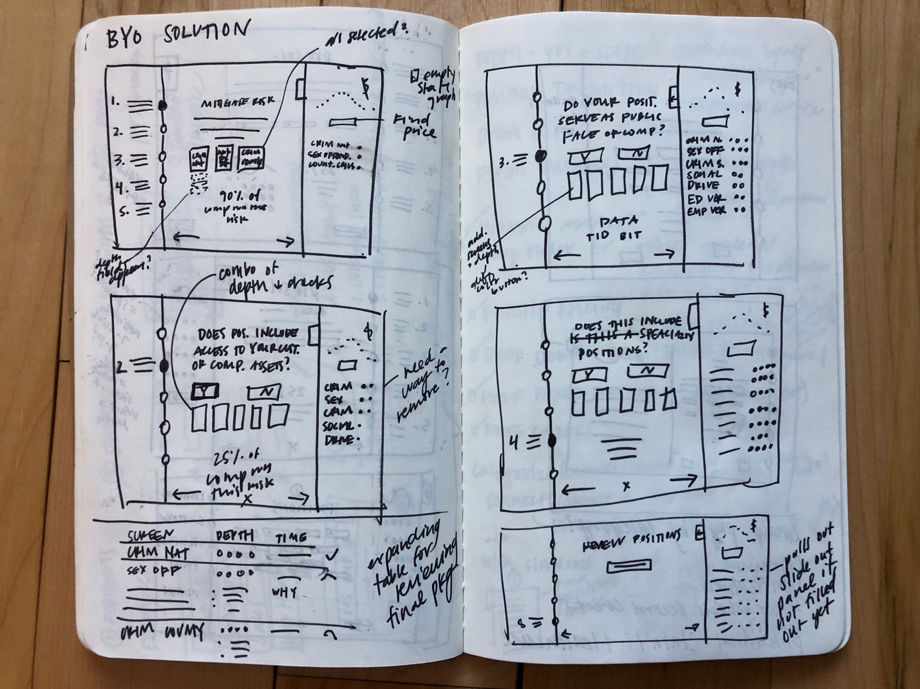 BYO SOLUTION
all selected?
empty state graph
Find price
1.
2.
3.
4.
5.
MITIGATE RISK
$
CRIM NAT
SEX OFFEND.
COUNT. CRIM.
90% of
comp run this
risk
depth
fields
appear?
combo of
depth + checks
2
DOES POS. INCLUDE
ACCESS TO YOUR CUST.
OR COMP. ASSETS?
Y N
$
CRIM
SEX
CRIM
SOCIAL
DRIVE
25% of
comp run
this risk
x
need
way to
remove?
SCREEN DEPTH TIME
CRIM NAT
SEX OFF
WHY
CRIM COUNTY
expanding
table for
reviewing
final pkg
3.
DO YOUR POSIT.
SERVE AS PUBLIC
FACE OF COMP?
Y N
$
CRIM N.
SEX OFF
CRIM S.
SOCIAL
DRIVE
ED VER
EMP VER
DATA
TID BIT
add.
depth
button?
4
DOES THIS INCLUDE
IS THIS A SPECIALTY
POSITIONS?
Y N
$
x
5
REVIEW POSITIONS
$
pulls out
slide out
panel if
not filled
out yet